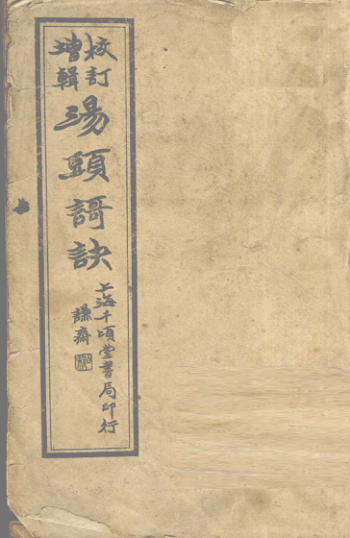 校訂
增輯
湯頭謌訣
上海千頃堂書局印行
謙齋